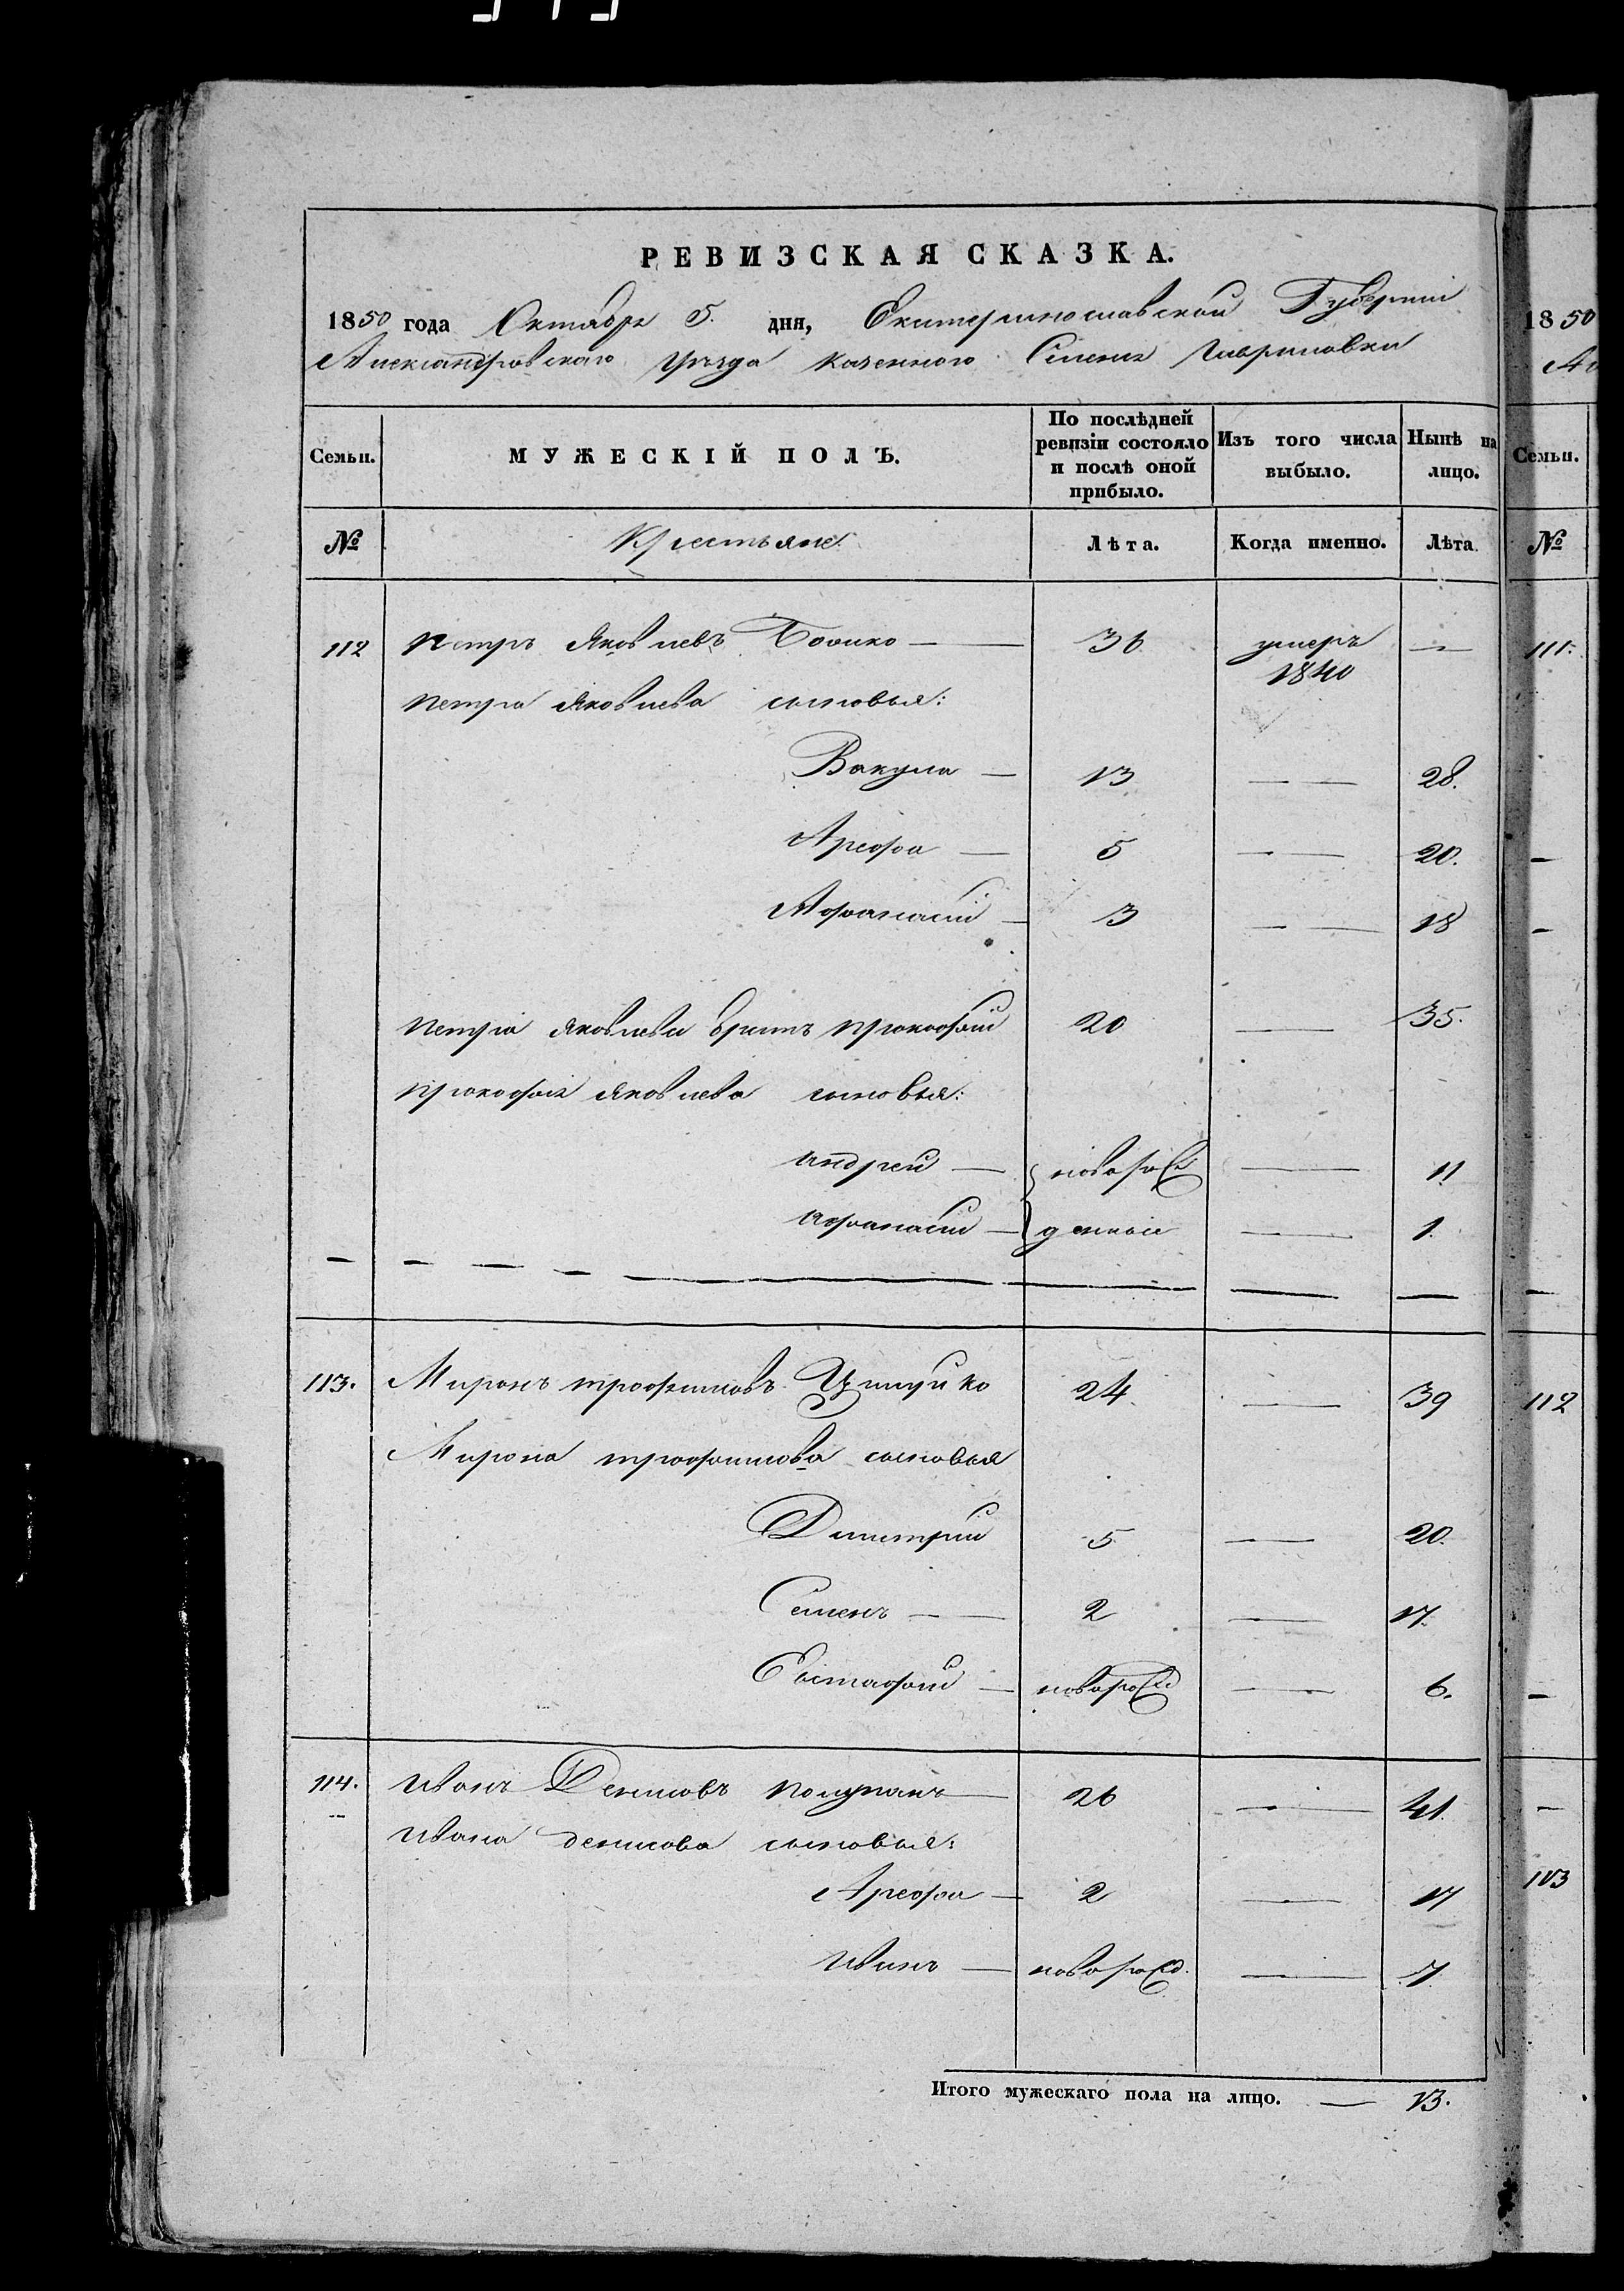 РЕВИЗСКАЯ СКАЗКА.
1850 года Октября 5. дня, Екатеринославской Губерніи
Александровскаго уѣзда казеннаго Селенія Гавриловки
Семьи. МУЖЕСКІЙ ПОЛЪ. По послѣдней ревизіи состояло и послѣ оной прибыло. Изъ того числа выбыло. Нынѣ на лицо.
№ Крестьяне. Лѣта. Когда именно. Лѣта.
112 Петръ Яковлевъ Бойко — 36 умеръ 1840 —
Петра Яковлева сыновья:
Вакула — 13 — 28.
Арефа — 5 — 20.
Афанасій — 3 — 18
Петра Яковлева братъ Прокофій 20 — 35.
Прокофія Яковлева сыновья:
Андрей — новорож — 11
Афанасій — денные — 1.
113. Миронъ Трофимовъ 24 — 39
Мирона Трофимова сыновья
Дмитрій 5 — 20.
Семенъ — 2 — 17.
Евстафій — новорожд — 6.
114. Иванъ Денисовъ Полупанъ — 26 — 41.
Ивана Денисова сыновья:
Арефа — 2 — 17
Иванъ — новорожд. — 7
Итого мужескаго пола на лицо. — 13.
1850
Семьи.
№
111.
112
113